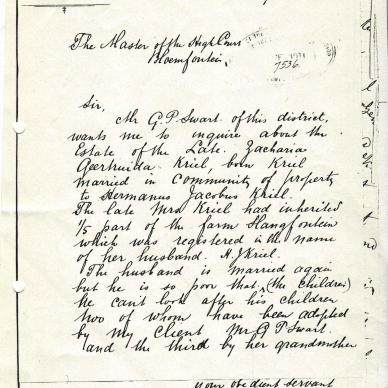 The Master of the High Court
Bloemfontein,
7536
Sir,
Mr G. P. Swart. of this district,
wants me to inquire about the
Estate of the Late. Zacharia
Geertruida. Kriel, born Kriel
married in community of property
to Hermanus Jacobus Kriel.
The late Mrs Kriel had inherited
1/5 part of the farm Hangfontein
which was registered in the name
of her husband. H. J Kriel.
The husband is married again
but he is so poor that (the children)
he can't look after his children
two of whom have been adopted
by my Client Mr G P Swart.
and the third by her grandmother
your obedient servant